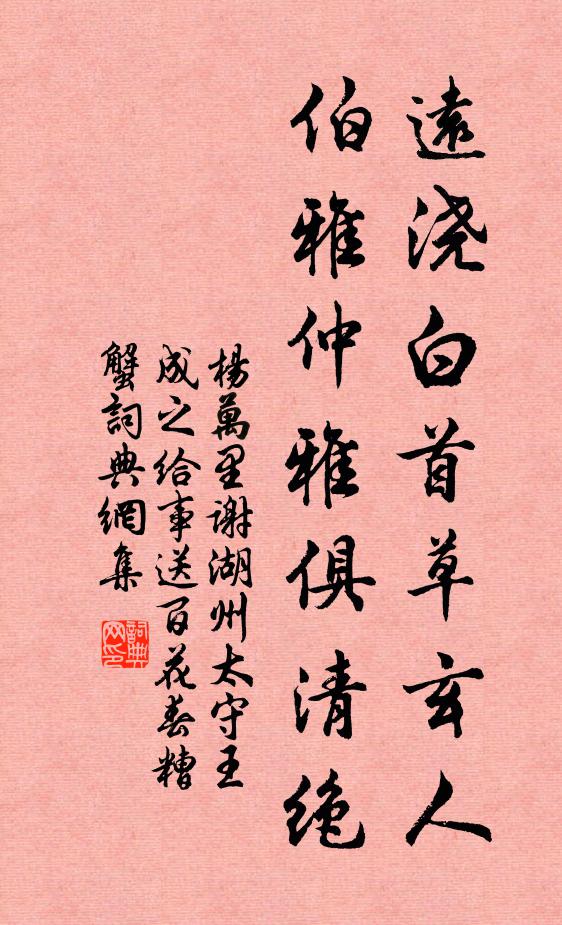 遠浇白首草玄人
伯雅仲雅俱清绝
楊萬里谢湖州太守王
成之给事送百花春糟
蟹詞典網集
詞典网印